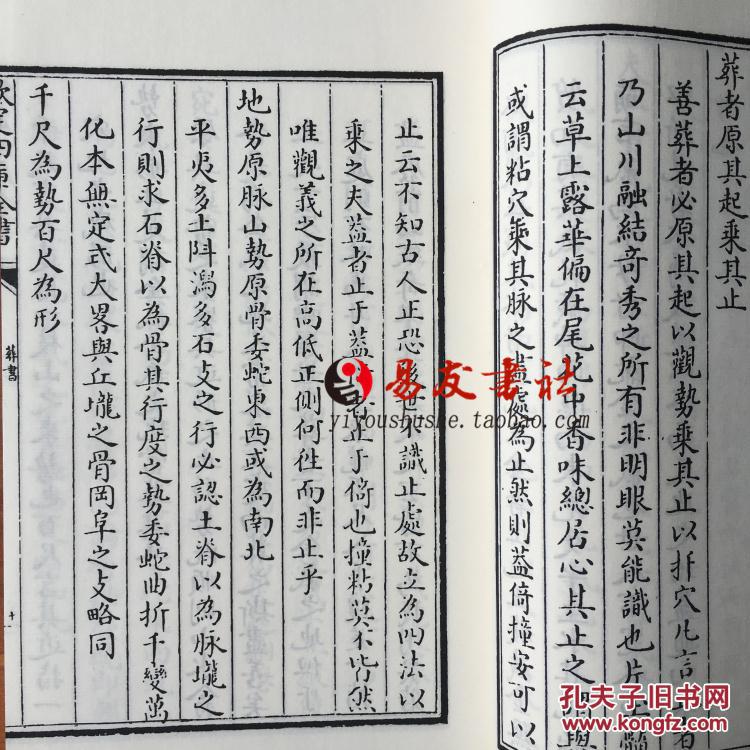 葬者原其起乘其止
善葬者必原其起以觀勢乘其止以扦穴凡言止者
乃山川融結竒秀之所有非明眼莫能識也片玉髓
云草上露華偏在尾花中香味總居心其止之謂與
或謂粘穴乗其脉之盡處為止然則葢倚撞安可以
止云不知古人正恐後世不識止處故立為四法以
乗之夫葢者止于葢者止于倚也撞粘莫不皆然
唯觀義之所在髙低正側何徃而非止乎
地勢原脉山勢原骨委蛇東西或為南北
平夷多土陡瀉多石支之行必認土脊以為脉壠之
行則求石脊以為骨其行度之勢委蛇曲折千變萬
化本無定式大畧與丘壠之骨岡阜之支略同
千尺為勢百尺為形
欽定四庫全書
葬書
十
易友書社
yiyoushushe.taobao.com
孔夫子旧书网
www.kongfz.com